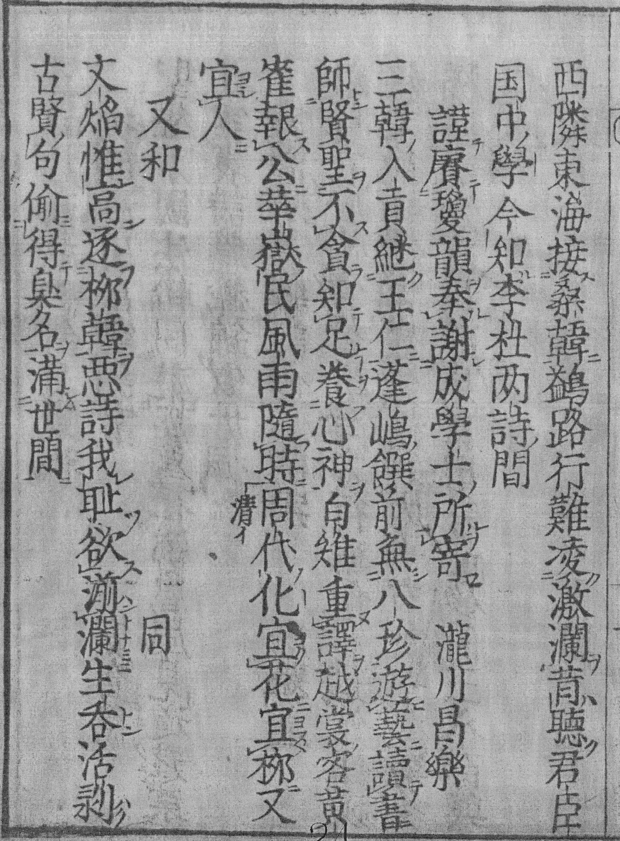 西隣東海接桑韓鷁路行難凌激瀾昔聴君臣
国中學今知李杜两詩間
謹賡瓊韻奉謝成學士所寄 瀧川昌樂
三韓入貢継王仁蓬嶋饌前無八珍遊藝讀書
師賢聖不貪知足養心神白雉重譯越裳客黄
雀報公華嶽民風雨隨時周代化宜花宜柳又
清イ
宜人
又和 同
文焔惟高逐柳韓悪詩我耻欲湔瀾生呑活剥
古賢句偷得臭名満世間
21